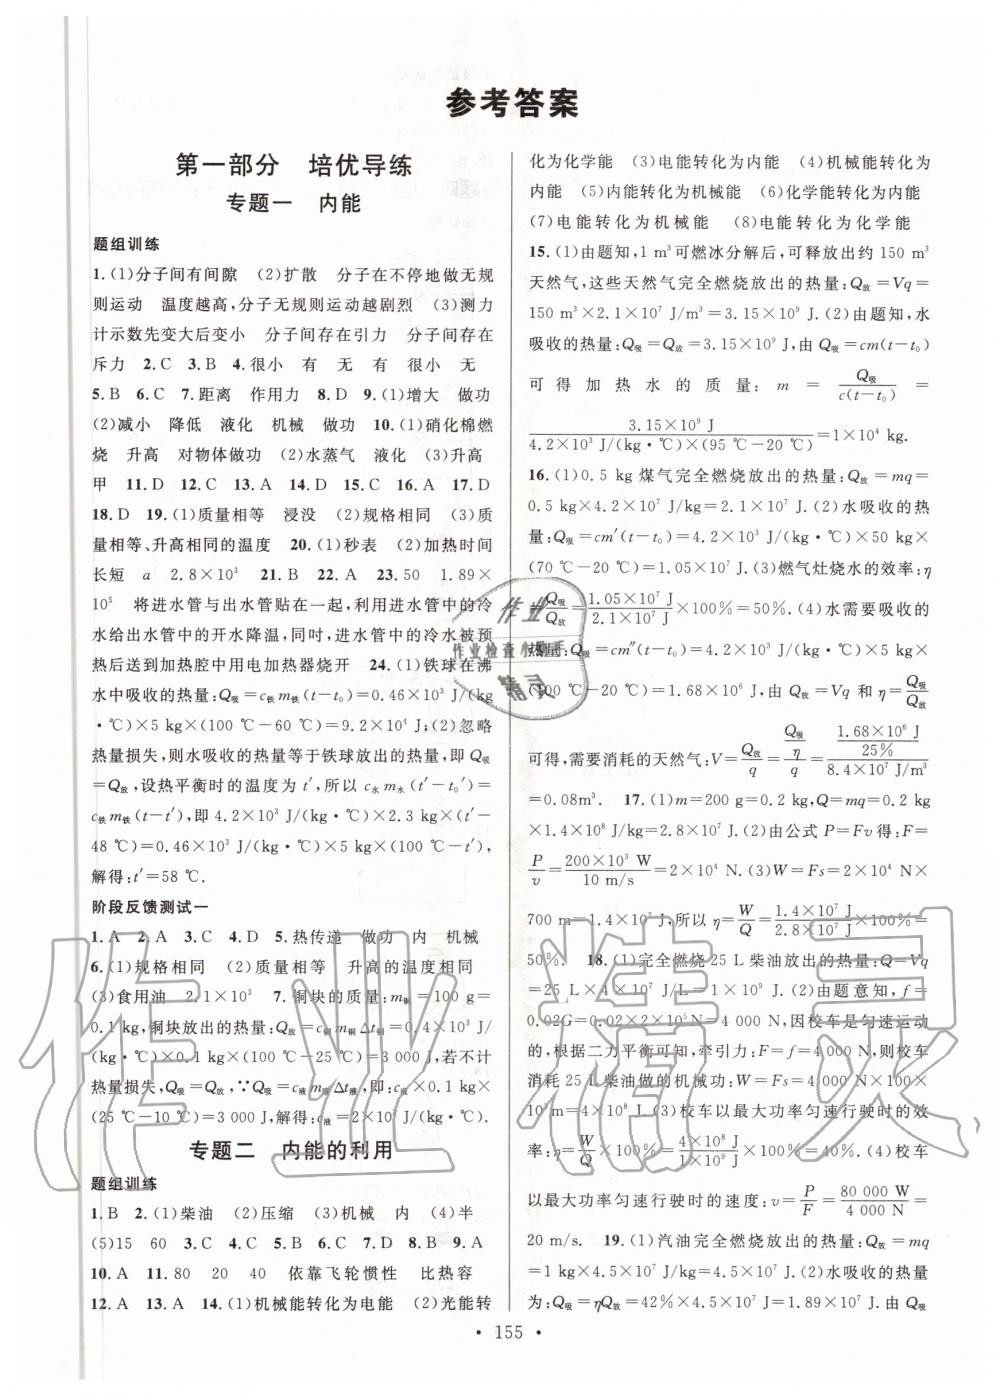 参考答案
第一部分　培优导练
专题一　内能
题组训练
1.(1)分子间有间隙　(2)扩散　分子在不停地做无规
则运动　温度越高,分子无规则运动越剧烈　(3)测力
计示数先变大后变小　分子间存在引力　分子间存在
斥力　2.C　3.B　4.很小　有　无　有　很小　无
5.B　6.C　7.距离　作用力　8.D　9.(1)增大　做功
(2)减小　降低　液化　机械　做功　10.(1)硝化棉燃
烧　升高　对物体做功　(2)水蒸气　液化　(3)升高
甲　11.D　12.C　13.A　14.D　15.C　16.A　17.D
18.D　19.(1)质量相等　浸没　(2)规格相同　(3)质
量相等、升高相同的温度　20.(1)秒表　(2)加热时间
长短　a　2.8×10³　21.B　22.A　23.50　1.89×
10⁵　将进水管与出水管贴在一起,利用进水管中的冷
水给出水管中的开水降温,同时,进水管中的冷水被预
热后送到加热腔中用电加热器烧开　24.(1)铁球在沸
水中吸收的热量:Q吸=c铁m铁(t−t₀)=0.46×10³ J/(kg
·℃)×5 kg×(100 ℃−60 ℃)=9.2×10⁴ J;(2)忽略
热量损失,则水吸收的热量等于铁球放出的热量,即 Q吸
=Q放,设热平衡时的温度为 t′,所以 c水m水(t′−t₀′)=
c铁m铁(t−t′),即 4.2×10³ J/(kg·℃)×2.3 kg×(t′−
48 ℃)=0.46×10³ J/(kg·℃)×5 kg×(100 ℃−t′),
解得:t′=58 ℃.
阶段反馈测试一
1.A　2.A　3.C　4.D　5.热传递　做功　内　机械
6.(1)规格相同　(2)质量相等　升高的温度相同
(3)食用油　2.1×10³　7.铜块的质量:m铜=100 g=
0.1 kg,铜块放出的热量:Q放=c铜m铜Δt铜=0.4×10³ J/
(kg·℃)×0.1 kg×(100 ℃−25 ℃)=3 000 J,若不计
热量损失,Q吸=Q放,∵Q吸=c液m液Δt液,即:c液×0.1 kg×
(25 ℃−10 ℃)=3 000 J,解得:c液=2×10³ J/(kg·℃).
专题二　内能的利用
题组训练
1.B　2.(1)柴油　(2)压缩　(3)机械　内　(4)半
(5)15　60　3.C　4.C　5.B　6.D　7.C　8.B　9.A
10.A　11.80　20　40　依靠飞轮惯性　比热容
12.A　13.A　14.(1)机械能转化为电能　(2)光能转
化为化学能　(3)电能转化为内能　(4)机械能转化为
内能　(5)内能转化为机械能　(6)化学能转化为内能
(7)电能转化为机械能　(8)电能转化为化学能
15.(1)由题知,1 m³可燃冰分解后,可释放出约 150 m³
天然气,这些天然气完全燃烧放出的热量:Q放=Vq=
150 m³×2.1×10⁷ J/m³=3.15×10⁹ J.(2)由题知,水
吸收的热量:Q吸=Q放=3.15×10⁹ J,由 Q吸=cm(t−t₀)
可得加热水的质量:m=Q吸/c(t−t₀)=
3.15×10⁹ J/4.2×10³ J/(kg·℃)×(95 ℃−20 ℃)=1×10⁴ kg.
16.(1)0.5 kg 煤气完全燃烧放出的热量:Q放=mq=
0.5 kg×4.2×10⁷ J/kg=2.1×10⁷ J.(2)水吸收的热
量:Q吸=cm′(t−t₀)=4.2×10³ J/(kg·℃)×50 kg
×(70 ℃−20 ℃)=1.05×10⁷ J.(3)燃气灶烧水的效率:η
=Q吸/Q放=1.05×10⁷ J/2.1×10⁷ J×100%=50%.(4)水需要吸收的
热量:Q吸=cm″(t−t₀)=4.2×10³ J/(kg·℃)×5 kg
×(100 ℃−20 ℃)=1.68×10⁶ J,由 Q放=Vq 和 η=Q吸/Q放
可得,需要消耗的天然气:V=Q放/q=(Q吸/η)/q=(1.68×10⁶ J/25%)/8.4×10⁷ J/m³
=0.08m³.　17.(1)m=200 g=0.2 kg,Q=mq=0.2 kg
×1.4×10⁸ J/kg=2.8×10⁷ J.(2)由公式 P=Fv 得:F=
P/v=200×10³ W/10 m/s=2×10⁴ N.(3)W=Fs=2×10⁴ N×
700 m=1.4×10⁷ J,所以 η=W/Q=1.4×10⁷ J/2.8×10⁷ J×100%=
50%.　18.(1)完全燃烧 25 L 柴油放出的热量:Q=Vq
=25 L×4×10⁷ J/L=1×10⁹ J.(2)由题意知,f=
0.02G=0.02×2×10⁵N=4 000 N,因校车是匀速运动
的,根据二力平衡可知,牵引力:F=f=4 000 N,则校车
消耗 25 L 柴油做的机械功:W=Fs=4 000 N×1×10⁵ m
=4×10⁸ J.(3)校车以最大功率匀速行驶时的效
率:η=W/Q×100%=4×10⁸ J/1×10⁹ J×100%=40%.(4)校车
以最大功率匀速行驶时的速度:v=P/F=80 000 W/4 000 N=
20 m/s.　19.(1)汽油完全燃烧放出的热量:Q放=mq
=1 kg×4.5×10⁷ J/kg=4.5×10⁷ J.(2)水吸收的热量
为:Q吸=ηQ放=42%×4.5×10⁷ J=1.89×10⁷ J.由 Q吸
·155·
作业精灵
作业
作业检查小助手
精灵